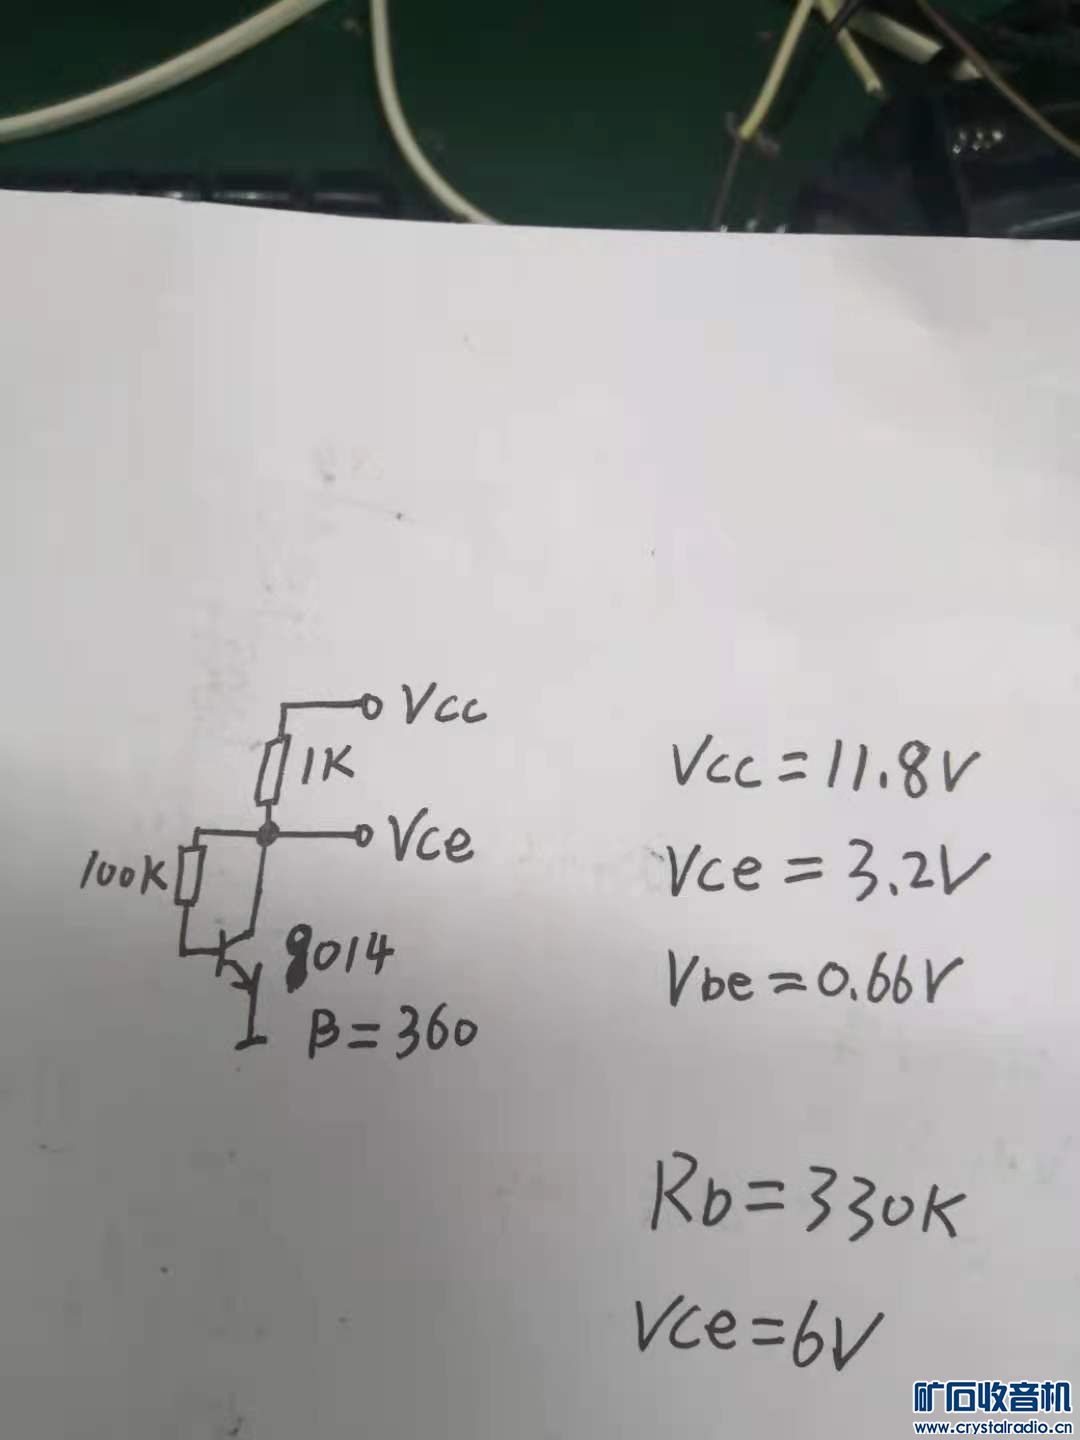 Vcc
1K
Vce
100K
9014
β=360
Vcc=11.8V
Vce=3.2V
Vbe=0.66V
Rb=330K
Vce=6V
矿石收音机
www.crystalradio.cn